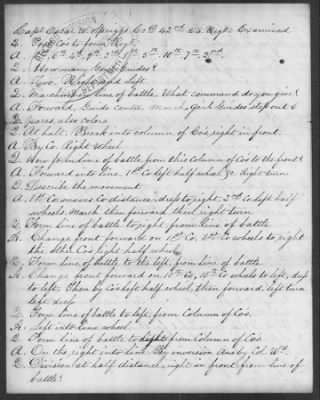 Capt Oscar W. Spriggs Co D 42d Examined
Q. Post Cos to form Regt.
A. 6th 4th 9th 3d 5th 10th 7th 2nd.
Q. How many Genl Guides?
A. Two. Right and left.
Q. Marching in line of battle, What command do you give?
A. Forward, Guide centre, March, Genl Guides step out 6
paces, also colors.
Q. At halt. Break into column of Co's right in front.
A. By Co. Right Wheel.
Q. How form line of battle from this Column of Co's to the front?
A. Forward into line, 1st Co left half wheel &c. Right turn
Q. Describe the movement.
A. 1st Co moves Co distance, dress to right. 2nd Co left half
wheels. March then forward then right turn.
Q. Form line of battle to right, from line of battle.
A. Change front forward on 1st Co. 1st Co wheels to right
the other Co's right half wheel
Q. Form line of battle to the left, from line of battle.
A. Change front forward on 10th Co, 10th Co wheels to left, dress
to left. Then by Co's left half wheel, then forward, left turn
left dress.
Q. Form line of battle to left, from Column of Co's.
A. Left into line wheel.
Q. Form line of battle to right from Column of Co's.
A. On the right into line. By inversion Ans by Col Wm.
Q. Division at half distance, right in front from line of
battle?